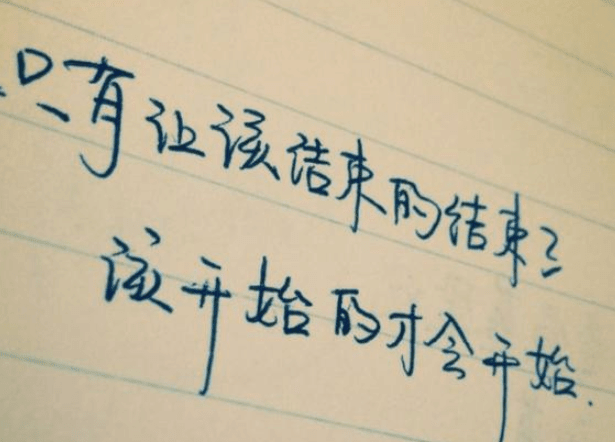 只有让该结束的结束了
该开始的才会开始.